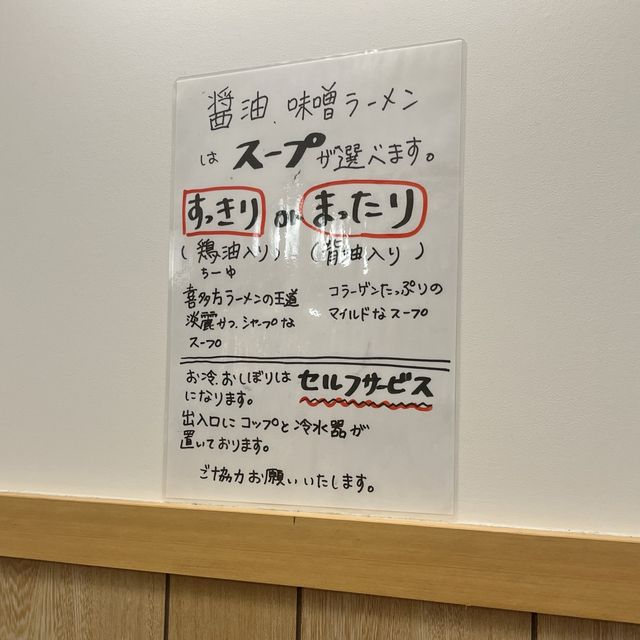 醤油、味噌ラーメン
は スープ が選べます。
すっきり or まったり
(鶏油入り) (背油入り)
ちーゆ
喜多方ラーメンの王道
淡麗かつ、シャープな
スープ
コラーゲンたっぷりの
マイルドなスープ
お冷、おしぼりは セルフサービス
になります。
出入口にコップと冷水器が
置いております。
ご協力お願いいたします。